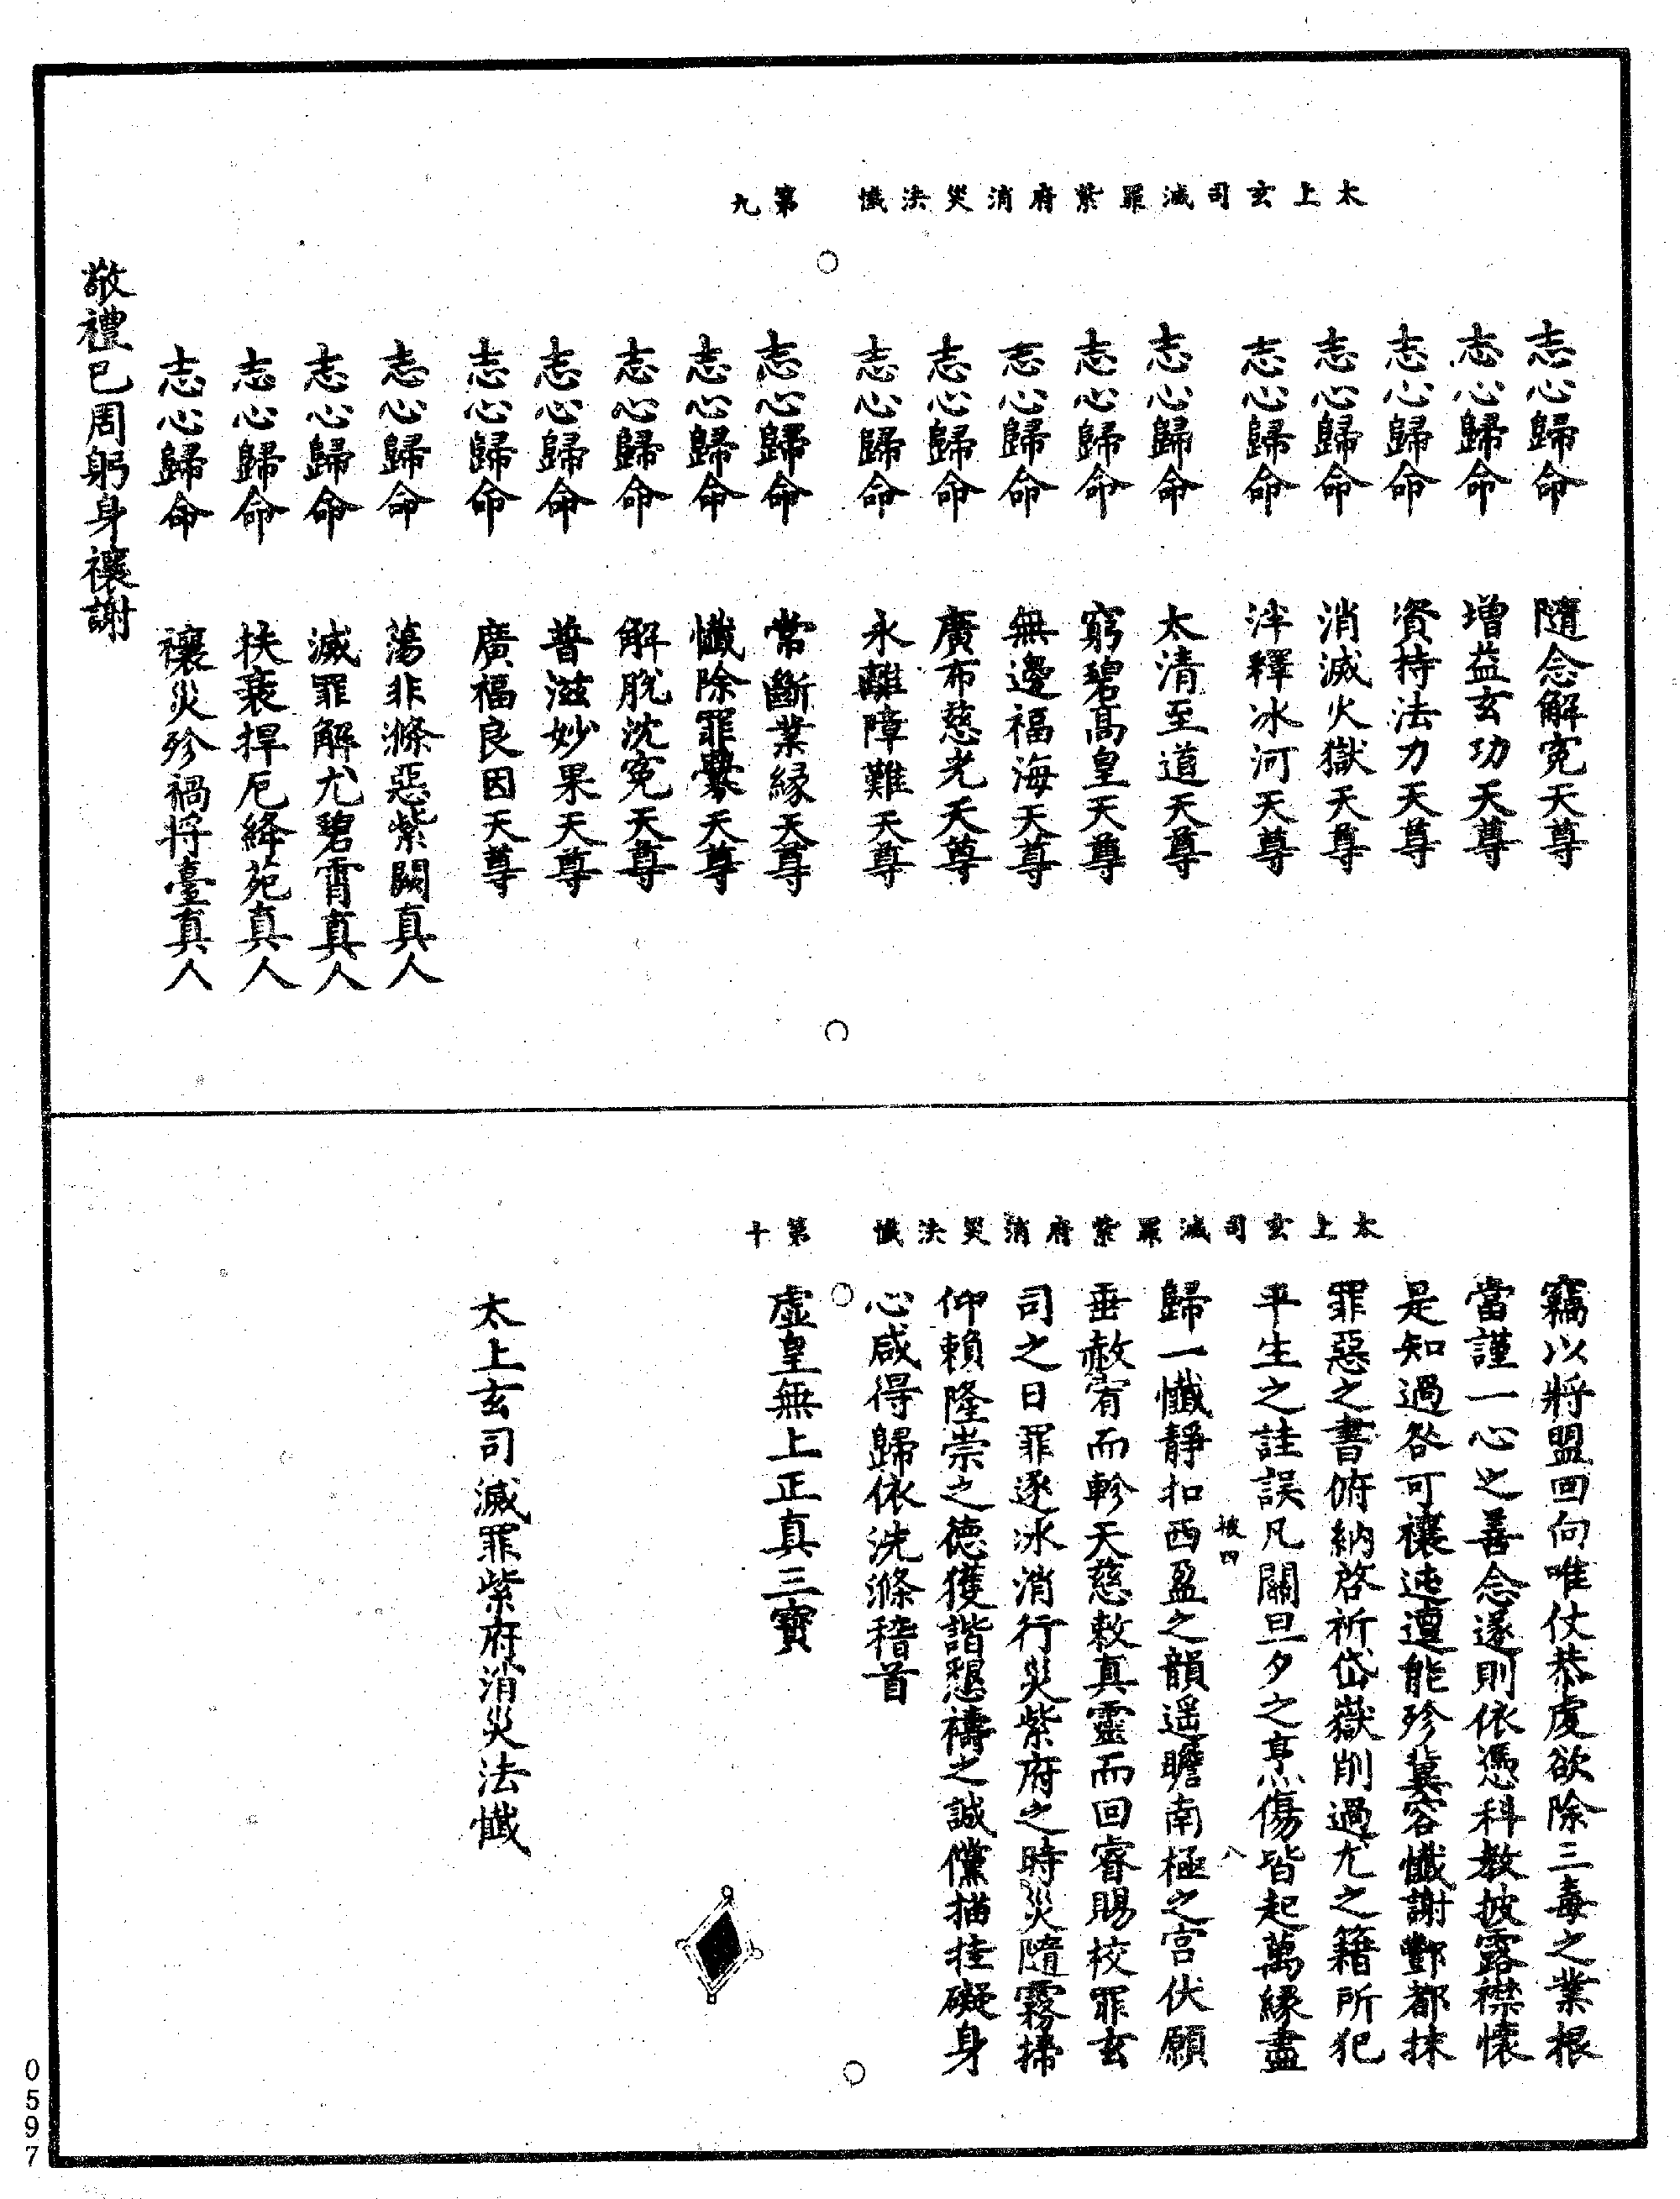 太上玄司滅罪紫府消災法懺　第九
志心歸命　隨念解冤天尊
志心歸命　增益玄功天尊
志心歸命　資持法力天尊
志心歸命　消滅火獄天尊
志心歸命　泮釋冰河天尊
志心歸命　太清至道天尊
志心歸命　窮碧高皇天尊
志心歸命　無邊福海天尊
志心歸命　廣布慈光天尊
志心歸命　永離障難天尊
志心歸命　常斷業緣天尊
志心歸命　懺除罪釁天尊
志心歸命　解脫沈冤天尊
志心歸命　普滋妙果天尊
志心歸命　廣福良因天尊
志心歸命　蕩非滌惡紫闕真人
志心歸命　滅罪解尤碧霄真人
志心歸命　扶衰捍厄絳苑真人
志心歸命　禳災殄禍將臺真人
敬禮已周躬身禳謝
太上玄司滅罪紫府消災法懺　第十
竊以將盟回向唯仗恭虔欲除三毒之業根
當謹一心之善念遂則依憑科教披露襟懷
是知過咎可禳迍邅能殄冀容懺謝酆都抹
罪惡之書俯納啓祈岱嶽削過尤之籍所犯
平生之詿誤凡關旦夕之烹傷皆起萬緣盡
被四　八
歸一懺靜扣西盈之韻遥瞻南極之宮伏願
垂赦宥而軫天慈敕真靈而回睿賜校罪玄
司之日罪逐冰消行災紫府之時災隨霧掃
仰賴隆崇之德獲諧懇禱之誠儻描挂礙身
心咸得歸依洗滌稽首
虛皇無上正真三寶
太上玄司滅罪紫府消災法懺
0597